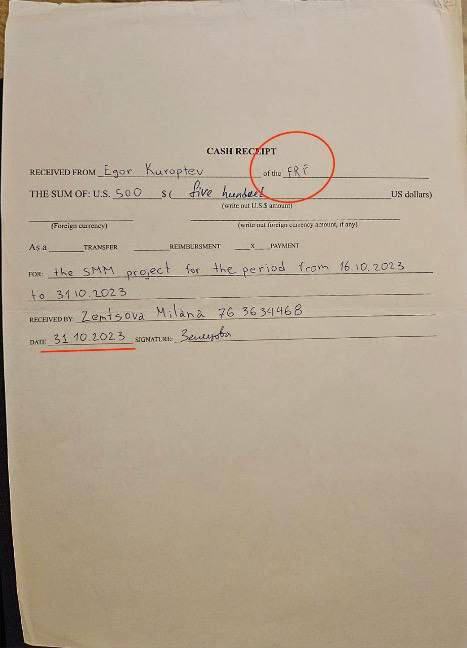 CASH RECEIPT
RECEIVED FROM Egor Kuroptev of the FRF
THE SUM OF: U.S. 500 $ ( five hundred US dollars)
(write out U.S.$ amount)
(Foreign currency) (write out foreign currency amount, if any)
As a ____ TRANSFER ____ REIMBURSMENT __X__ PAYMENT
FOR: the SMM project for the period from 16.10.2023
to 31.10.2023
RECEIVED BY: Zemtsova Milana 76 3634468
DATE: 31.10.2023 SIGNATURE: Земцова